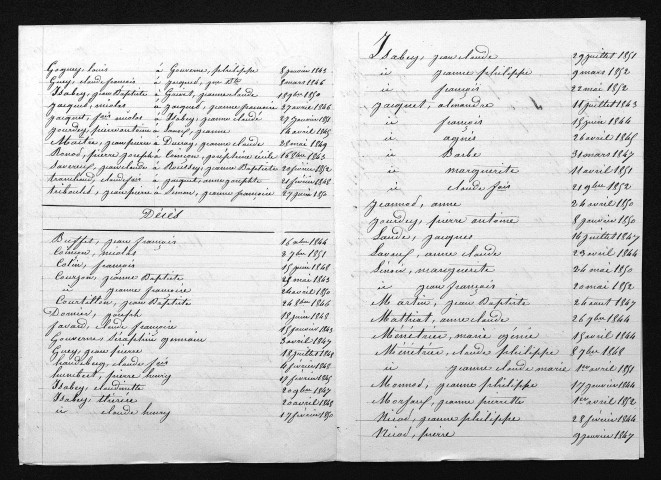 Gogney, louis à Gouverne, philippe 8 janvier 1843
Guey, claude françois à jacquet, 8 mars 1846
Isabey, jean Baptiste à jeanne claude 18 9bre 1850
jacquet, nicolas à jacquet, jeanne françoise 27 avril 1846
jacquet, fois nicolas à Isabey, jeanne claude 27 janvier 1851
jourdey, pierre antoine à jeanne 14 avril 1845
Maitre, jean pierre à jeanne claude 28 mai 1849
pierre joseph à Coinson, joséphine 16 1843
jean claude à jeanne Baptiste 20 février 1852
jacquet, anne josephte 21 février 1848
jean pierre à Simon, jeanne françoise 27 juin 1850
Décès
Buffet, jean françois 16 1844
nicolas 3 7bre 1851
Colin, françois 15 juin 1848
Courzon, jeanne Baptiste 25 mai 1843
id jeanne françoise 24 avril 1850
Courtillon, jean Baptiste 24 8bre 1846
Donnier, joseph 18 juin 1848
Javard, claude françoise 15 janvier 1843
Gouverne Séraphin germain 3 avril 1847
Guey, jean pierre 18 juillet 1848
claude fois 4 février 1848
humbert, pierre henry 17 février 1845
Isabey, claudinette 20 9bre 1847
Isabey, thérèse 20 avril 1848
id claude henry 17 février 1850
Isabey, jean claude 29 juillet 1851
id jeanne philippe 9 mars 1852
id françois 22 mai 1852
jacquet, alexandre 18 juillet 1843
id françois 15 juin 1844
id agnès 26 avril 1845
id Barbe 31 mars 1847
id marguerite 11 avril 1851
id claude fois 21 9bre 1852
jeannod, anne 24 avril 1850
jourdey, pierre antoine 8 janvier 1850
Laude, jacques 16 juillet 1847
anne claude 23 avril 1844
marguerite 24 mai 1850
id jean françois 20 mai 1852
Martin, jean Baptiste 24 août 1847
Mathiot, anne claude 26 9bre 1844
Ménétrier, marie génie 15 avril 1844
Ménétrier, claude philippe 8 9bre 1848
id jeanne claude marie 1er avril 1851
Monnod, jeanne philippe 17 janvier 1844
jeanne pierrette 1er avril 1852
Nicod, jeanne philippe 28 février 1844
Nicod, pierre 9 janvier 1847